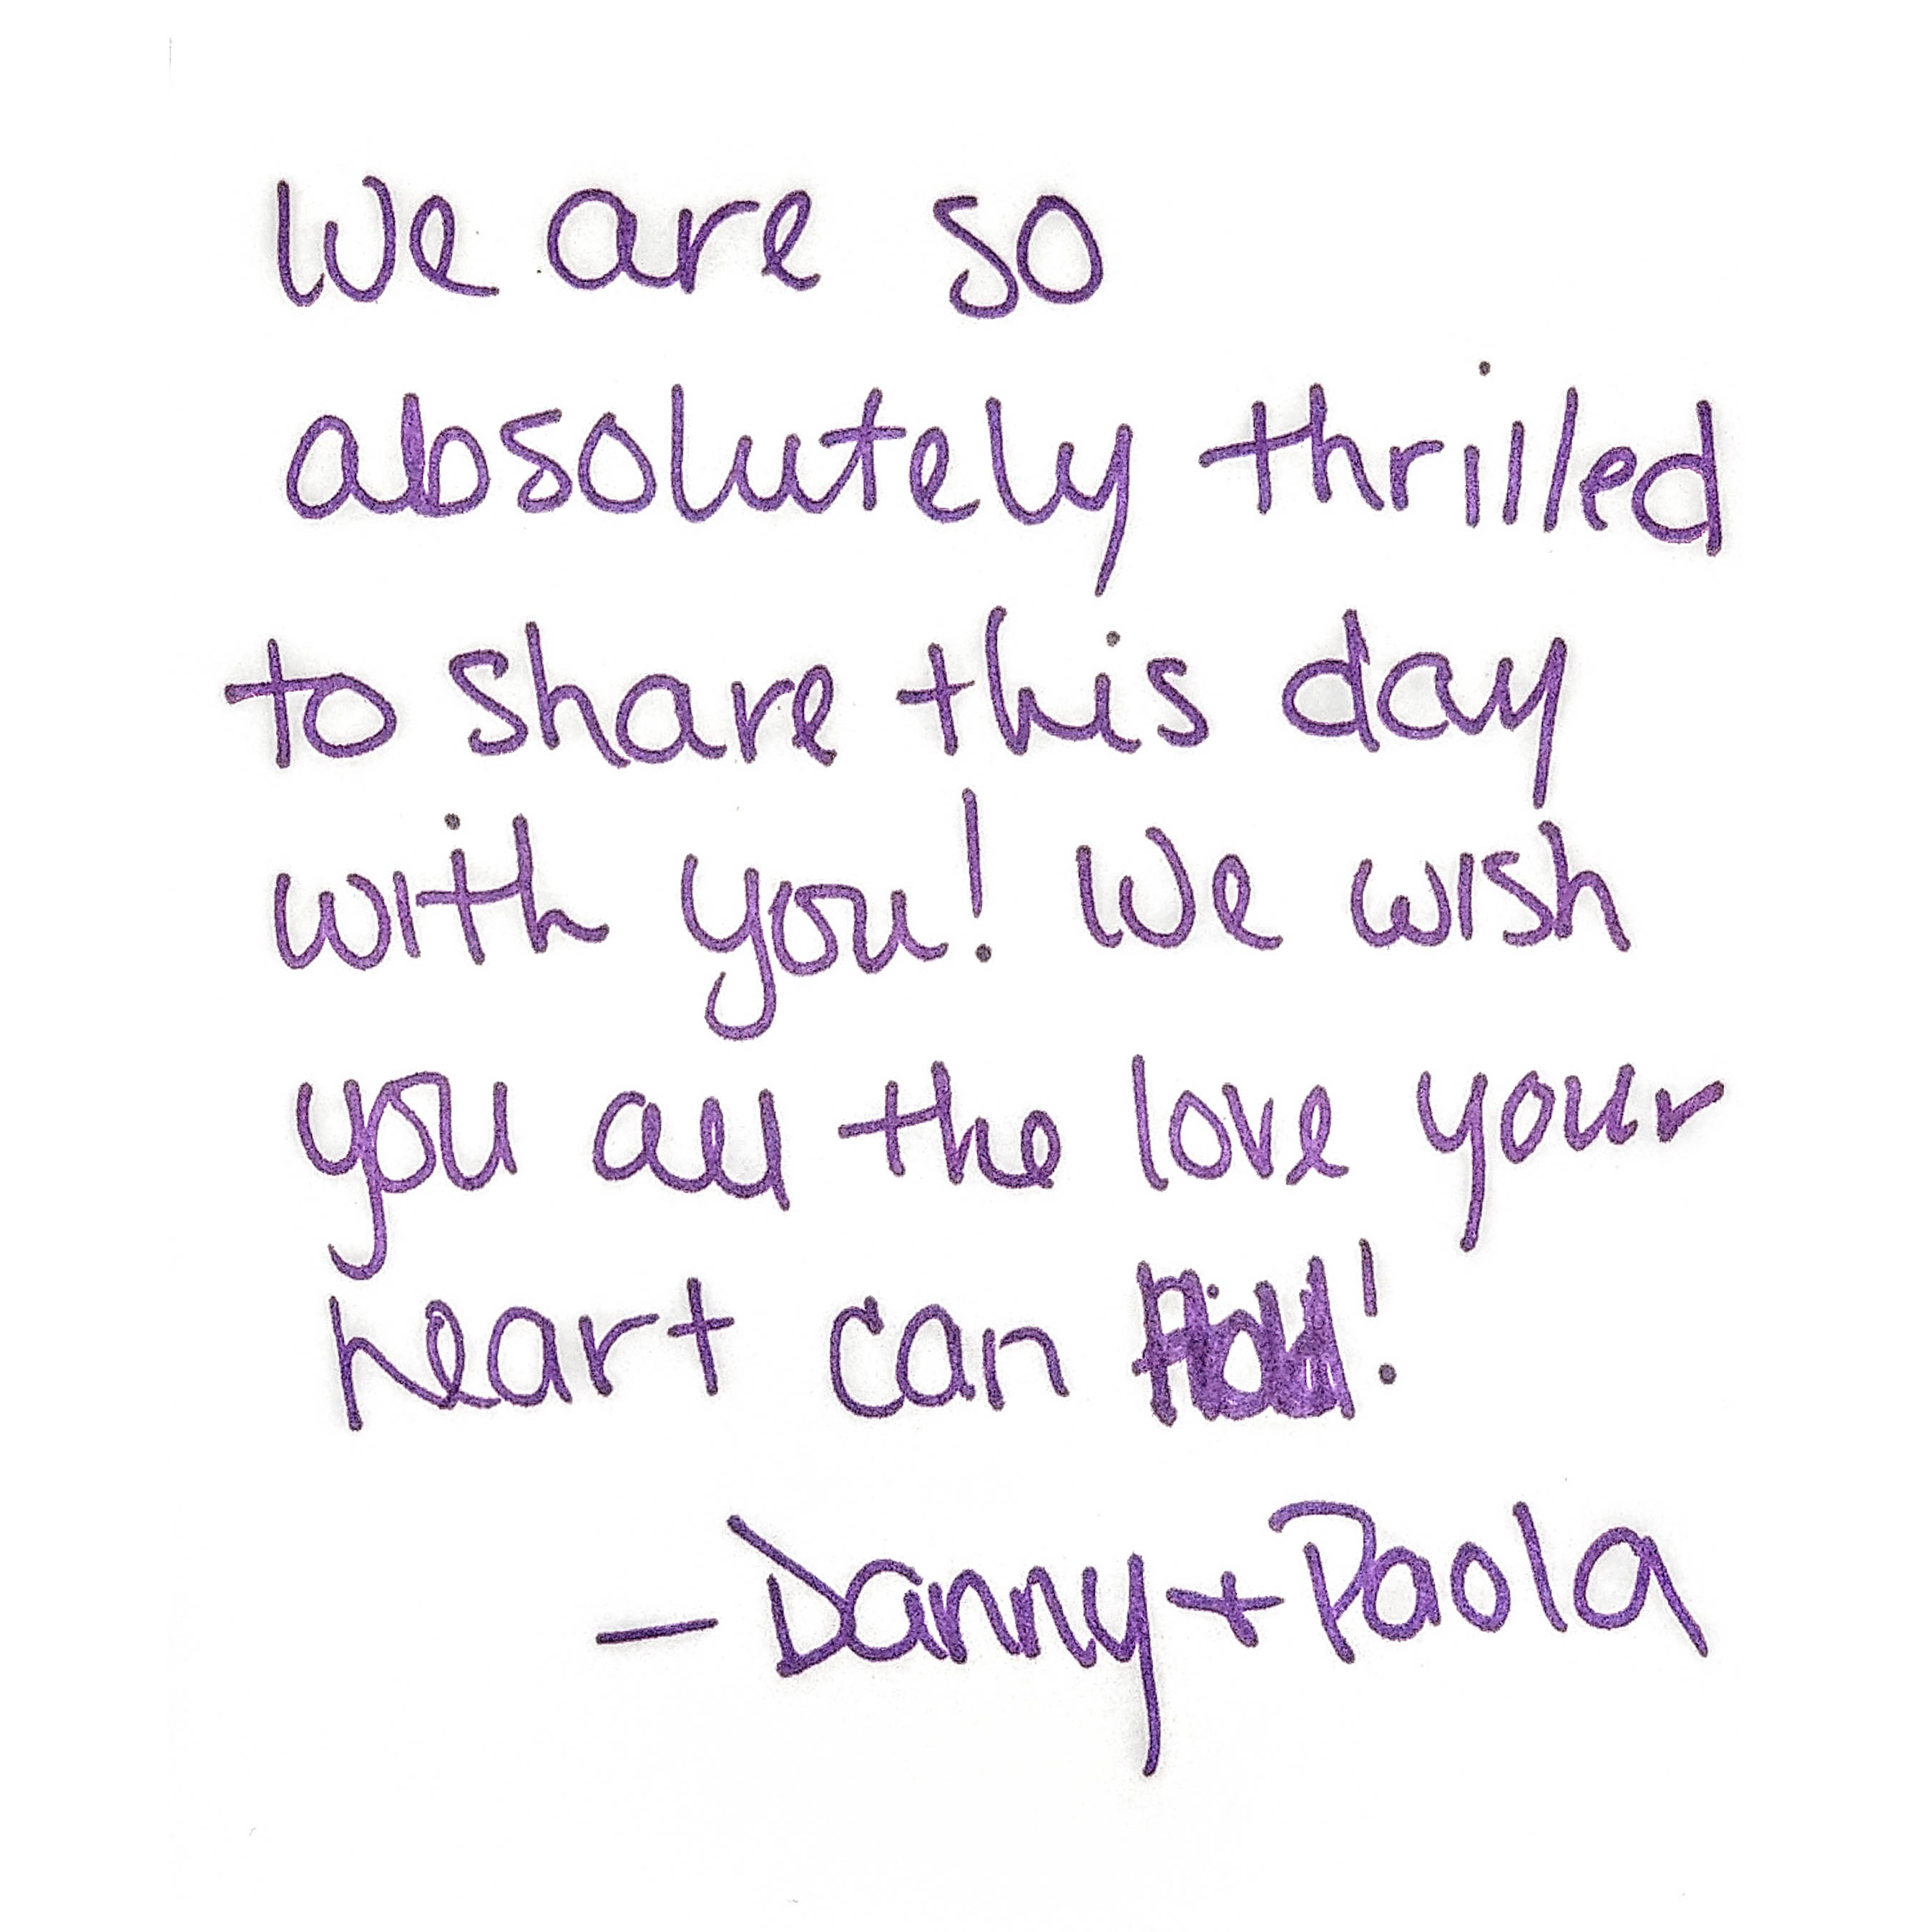 We are so
absolutely thrilled
to share this day
with you! We wish
you all the love your
heart can hold!
- Danny + Paola